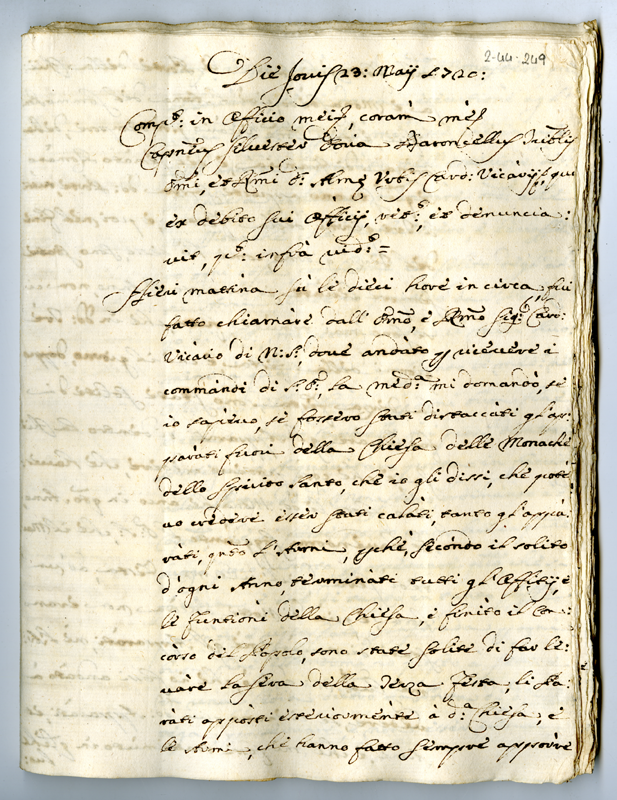 2-44-249
Die Jovis 23: Maij 1720:
Comp.t: in Officio mei, coram me
Silvester Doria Baroncellus
Emi, et Rmi D. Almæ Urbis Card: Vicarij, qui
ex debito sui Officij, ret.t: et denuncia:
vit, infrà vid.t=
Hieri mattina sù le dieci hore in circa, fui
fatto chiamare dall' Emo, e Rmo Sig.r Card:
Vicario di N: S.re, dove andato p ricevere i
commandi di S. E., la med.a mi domandò, se
io sapevo, se fossero stati distaccati gl' ap:
parati fuori della Chiesa delle Monache
dello Spirito Santo, che io gli dissi, che pote
vo credere esser stati calati, tanto gl' appa:
rati, qnto l' Armi, pche, secondo il solito
d'ogni Anno, terminati tutti gl' Offitij, e
le funtioni della Chiesa, e finito il Con:
corso del Popolo, sono state solite di far le:
vare la sera della terza festa, li Pa:
rati apposti esteriormente à d.a Chiesa, e
le Armi, che hanno fatto sempre apporre